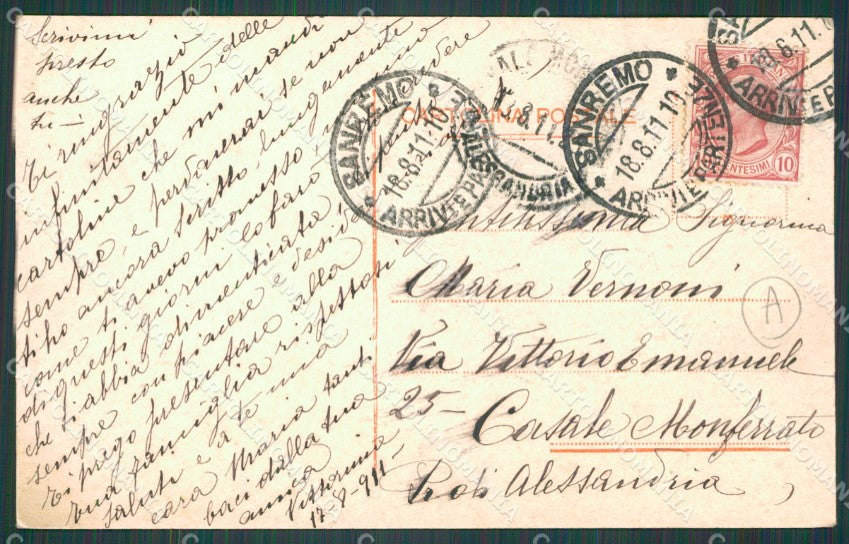 Scrivimi
presto
anche
tu —
Ti ringrazio
infinitamente delle
cartoline che mi mandi
sempre, e perdonerai se non
ti ho ancora scritto lungamente
come ti avevo promesso, ma uno
di questi giorni lo farò
che ti abbia dimenticata
sempre con piacere e desidero
Ti prego presentare alla
tua famiglia rispettosi
saluti e a te una
cara Maria tanti
baci dalla tua
amica
Vittorina
17-8-911-
CARTOLINA POSTALE
SANREMO
18.8.11.10
ARRIVI E PARTENZE
ALESSANDRIA
SANREMO
18.8.11.10
ARRIVI E PARTENZE
18.8.11.10
ARRIVI E PAR
CENTESIMI 10
Gentilissima Signorina
Maria Vernoni
Via Vittorio Emanuele
25- Casale Monferrato
Prov di Alessandria
A
CARTOLINOMANIA